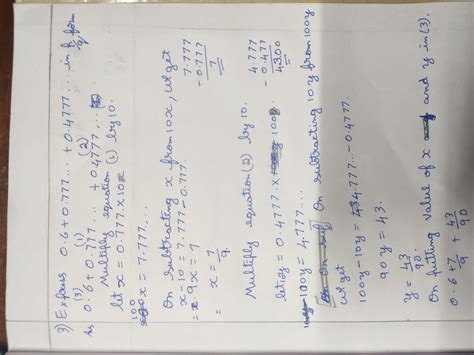 3) Express 0.6 + 0.777... + 0.4777... in p/q form
(3) (1) (2)
0.6 + 0.777... + 0.4777...
Multiply equation (1) by 10.
let x = 0.777 x 10x
10x = 7.777...
On subtracting x from 10x, we get
7.777
- 0.777
7
x - 10 = 7.777 - 0.777.
= 9x = 7
= x = 7/9.
Multiply equation (2) by 10.
4.777
- 0.477
4300
let y = 0.4777 x 100y
100y = 4.777...
On subtracting 10y from 100y
we get
100y - 10y = 4.777... - 0.4777.
90y = 43.
y = 43/90.
On putting value of x and y in (3).
0.6 + 7/9 + 43/90